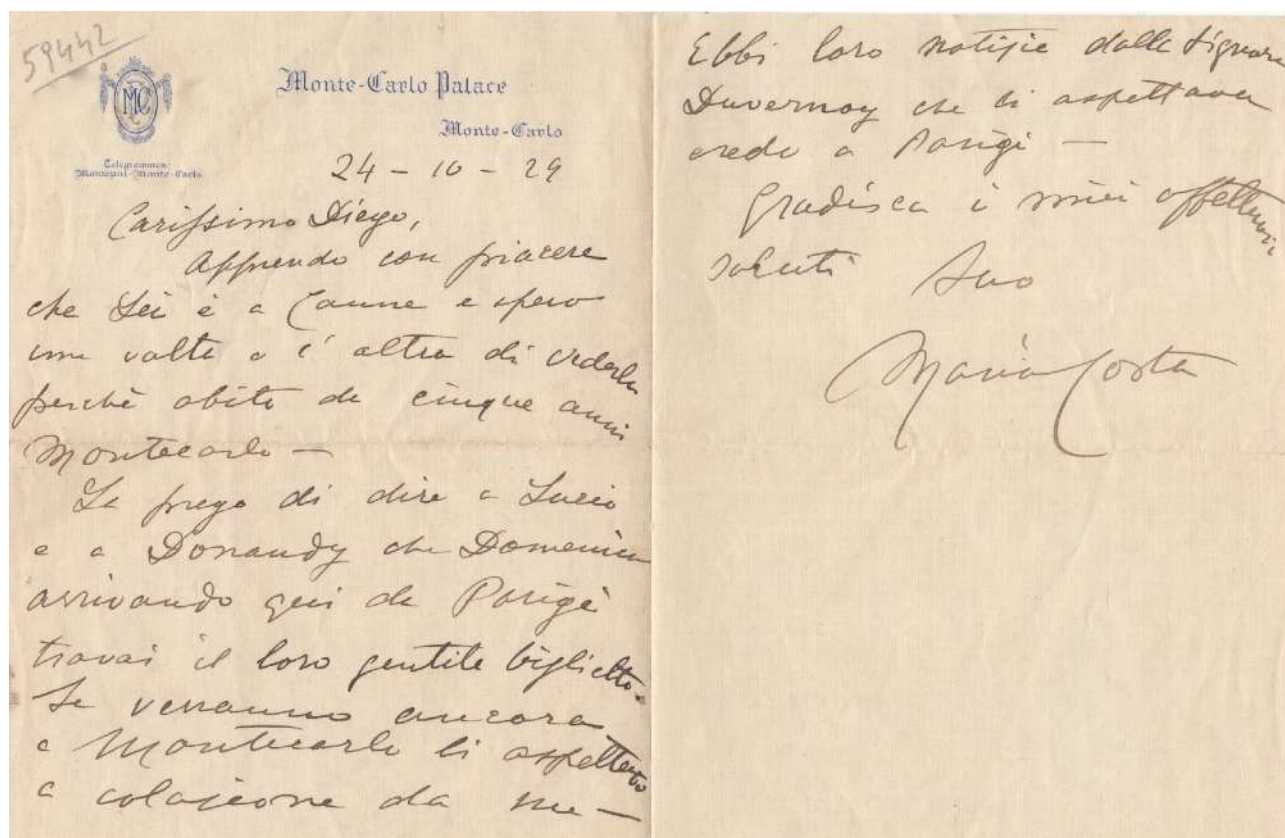 59442
MC
Monte-Carlo Palace
Monte-Carlo
Telegrammes:
Montepal-Monte-Carlo
24 - 10 - 29
Carissimo Diego,
Apprendo con piacere
che Lei è a Canne e spero
una volta o l'altra di vederla
perchè abito da cinque anni
Montecarlo —
La prego di dire a Lucio
e a Donaudy che Domenica
arrivando qui da Parigi
trovai il loro gentile biglietto.
Se verranno ancora
a Montecarlo li aspetterò
a colazione da me —
Ebbi loro notizie dalla Signora
Duvernoy che li aspettava
credo a Parigi —
Gradisca i miei affettuosi
saluti Suo
Mario Costa